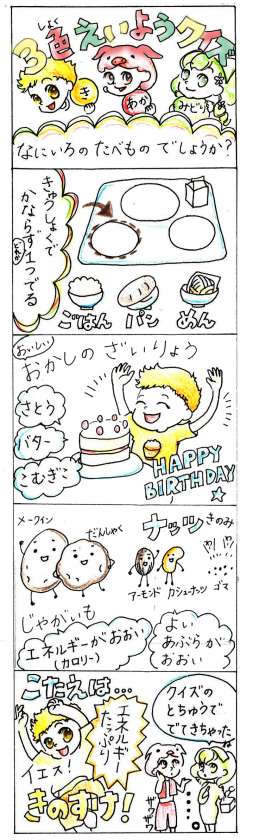 3色えいようクイズ
しょく
き
あか
みどり
なにいろの たべもの でしょうか?
きゅうしょくで
かならず1つでる
どれか
ごはん
パン
めん
おいしい
おかしの ざいりょう
さとう
バター
こむぎこ
HAPPY
BIRTHDAY
メークイン
だんしゃく
じゃがいも
エネルギーがおおい
(カロリー)
ナッツ きのみ
アーモンド
カシューナッツ
ゴマ
よい
あぶらが
おおい
こたえは…
エネルギー
たっぷり
イエス!
きのずけ!
クイズの
とちゅうで
でてきちゃった
ザザザ